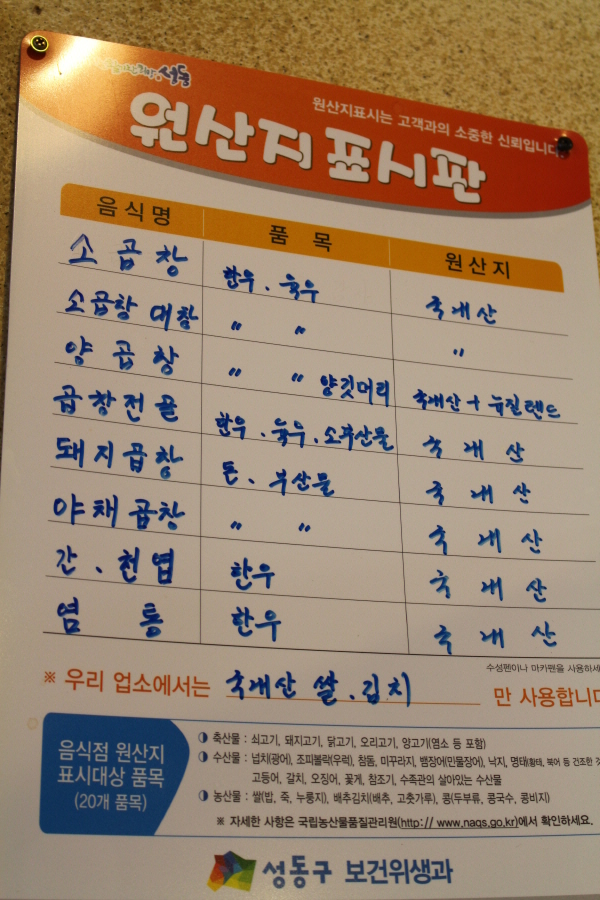 성동
원산지표시는 고객과의 소중한 신뢰입니다
원산지 표시판
음식명 품 목 원산지
소 곱 창 한우 . 육우 국내산
소곱창 대창 〃 〃 〃
양 곱 창 〃 〃 양깃머리 국내산 + 뉴질랜드
곱창전골 한우 . 육우 . 소부산물 국 내 산
돼지곱창 돈 . 부산물 국 내 산
야채곱창 〃 〃 국 내 산
간 . 천엽 한우 국 내 산
염 통 한우 국 내 산
수성펜이나 마카펜을 사용하세
※ 우리 업소에서는 국내산 쌀 . 김치 만 사용합니다
음식점 원산지
표시대상 품목
(20개 품목)
축산물 : 쇠고기, 돼지고기, 닭고기, 오리고기, 양고기(염소 등 포함)
수산물 : 넙치(광어), 조피볼락(우럭), 참돔, 미꾸라지, 뱀장어(민물장어), 낙지, 명태(황태, 북어 등 건조한 것
고등어, 갈치, 오징어, 꽃게, 참조기, 수족관의 살아있는 수산물
농산물 : 쌀(밥, 죽, 누룽지), 배추김치(배추, 고춧가루), 콩(두부류, 콩국수, 콩비지)
※ 자세한 사항은 국립농산물품질관리원(http:// www.naqs.go.kr)에서 확인하세요.
성동구 보건위생과